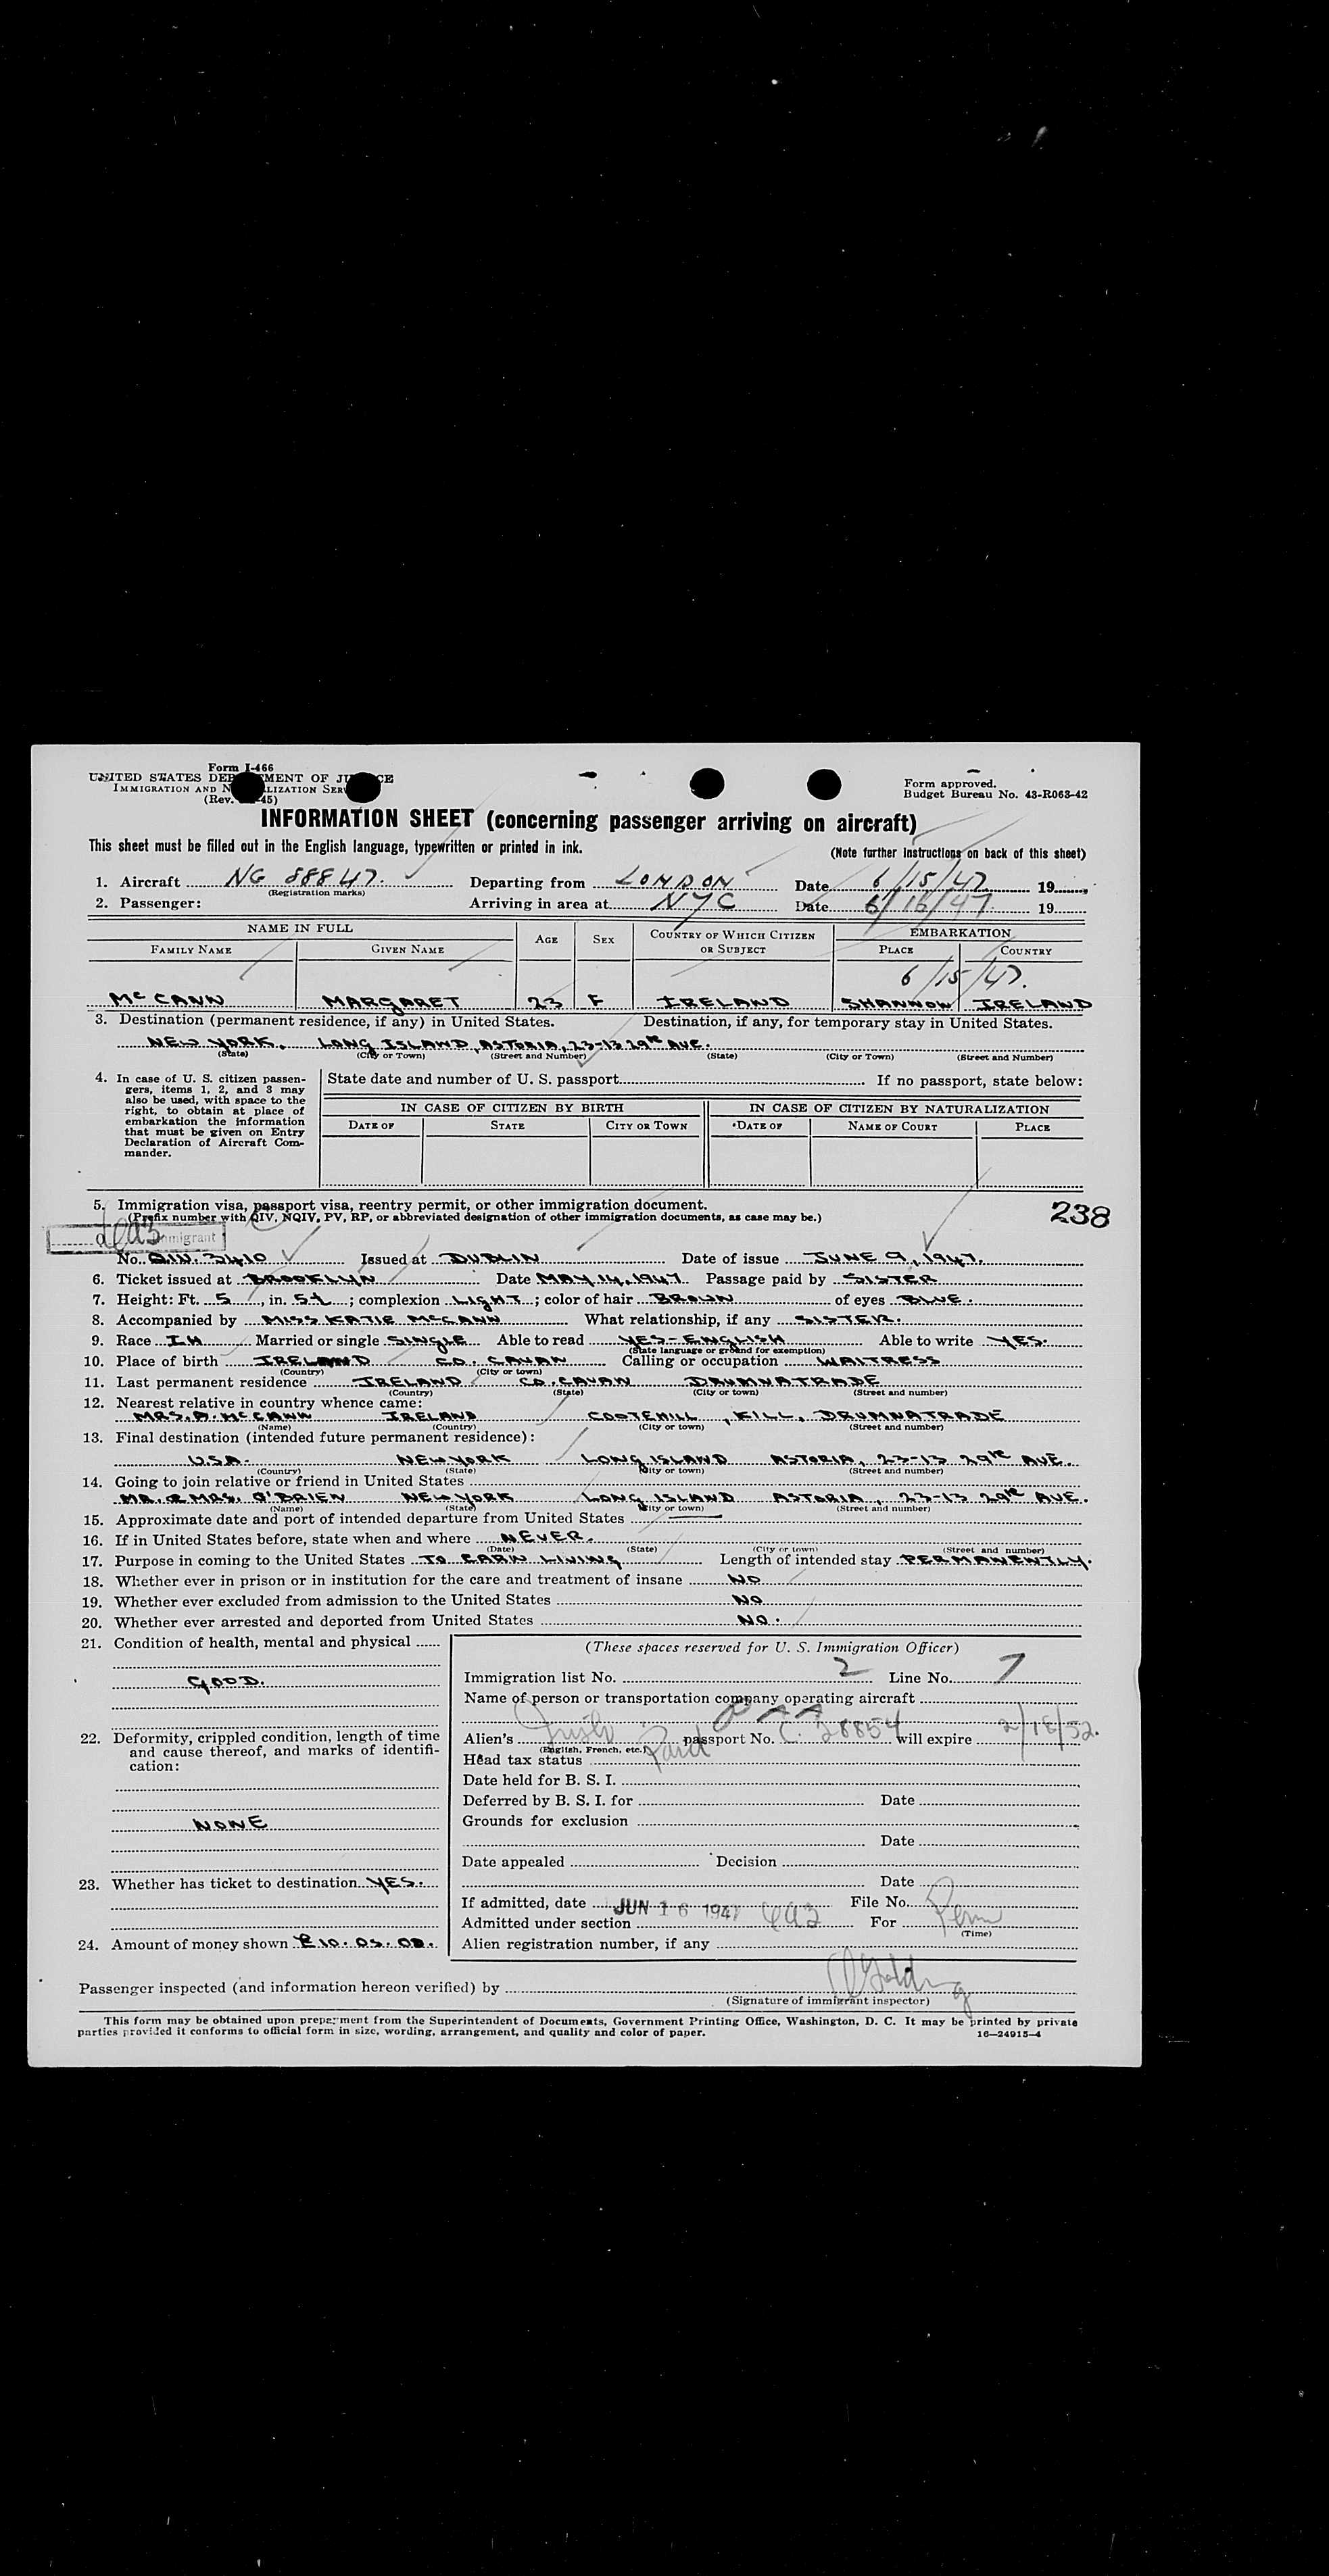 Form I-466
UNITED STATES DEPARTMENT OF JUSTICE
IMMIGRATION AND NATURALIZATION SERVICE
(Rev. 45)
Form approved.
Budget Bureau No. 43-R063-42
INFORMATION SHEET (concerning passenger arriving on aircraft)
This sheet must be filled out in the English language, typewritten or printed in ink.
(Note further instructions on back of this sheet)
1. Aircraft NC 88847. Departing from LONDON Date 6/15/47 19
(Registration marks)
2. Passenger: Arriving in area at NYC Date 6/16/47 19
NAME IN FULL AGE SEX COUNTRY OF WHICH CITIZEN OR SUBJECT EMBARKATION
FAMILY NAME GIVEN NAME PLACE COUNTRY
6/15/47.
McCANN MARGARET 23 F IRELAND SHANNON IRELAND
3. Destination (permanent residence, if any) in United States. Destination, if any, for temporary stay in United States.
NEW YORK, LONG ISLAND, ASTORIA, 23-13 29th AVE.
(State) (City or Town) (Street and Number) (State) (City or Town) (Street and Number)
4. In case of U. S. citizen passengers, items 1, 2, and 3 may also be used, with space to the right, to obtain at place of embarkation the information that must be given on Entry Declaration of Aircraft Commander.
State date and number of U. S. passport If no passport, state below:
IN CASE OF CITIZEN BY BIRTH IN CASE OF CITIZEN BY NATURALIZATION
DATE OF STATE CITY OR TOWN DATE OF NAME OF COURT PLACE
5. Immigration visa, passport visa, reentry permit, or other immigration document.
238
(Prefix number with QIV, NQIV, PV, RP, or abbreviated designation of other immigration documents, as case may be.)
No. Q.I.V. 3410 Issued at DUBLIN Date of issue JUNE 9, 1947.
6. Ticket issued at BROOKLYN Date MAY, 14, 1947 Passage paid by SISTER
7. Height: Ft. 5, in. 5½; complexion LIGHT; color of hair BROWN of eyes BLUE.
8. Accompanied by MISS KATIE McCANN What relationship, if any SISTER.
9. Race IH Married or single SINGLE Able to read YES-ENGLISH Able to write YES.
(State language or ground for exemption)
10. Place of birth IRELAND CO. CAVAN Calling or occupation WAITRESS
(Country) (City or town)
11. Last permanent residence IRELAND CO. CAVAN DRUMNATRADE
(Country) (State) (City or town) (Street and number)
12. Nearest relative in country whence came:
MRS. A. McCANN IRELAND COOTEHILL, KILL, DRUMNATRADE
(Name) (Country) (City or town) (Street and number)
13. Final destination (intended future permanent residence):
U.S.A. NEW YORK LONG ISLAND ASTORIA, 23-13 29th AVE.
(Country) (State) (City or town) (Street and number)
14. Going to join relative or friend in United States
MR. & MRS. O'BRIEN NEW YORK LONG ISLAND ASTORIA, 23-13 29th AVE.
(Name) (State) (City or town) (Street and number)
15. Approximate date and port of intended departure from United States
16. If in United States before, state when and where NEVER.
(Date) (State) (City or town) (Street and number)
17. Purpose in coming to the United States TO EARN LIVING Length of intended stay PERMANENTLY.
18. Whether ever in prison or in institution for the care and treatment of insane NO
19. Whether ever excluded from admission to the United States NO
20. Whether ever arrested and deported from United States NO.
21. Condition of health, mental and physical
GOOD.
22. Deformity, crippled condition, length of time and cause thereof, and marks of identification:
NONE
23. Whether has ticket to destination YES.
24. Amount of money shown £10. 05. 00.
(These spaces reserved for U. S. Immigration Officer)
Immigration list No. 2 Line No. 7
Name of person or transportation company operating aircraft
PAA
Alien's Irish passport No. C 28854 will expire 2/18/52.
(English, French, etc.)
Head tax status Paid
Date held for B. S. I.
Deferred by B. S. I. for Date
Grounds for exclusion
Date
Date appealed Decision
Date
If admitted, date JUN 16 1947 File No.
Admitted under section 4a3 For Perm
(Time)
Alien registration number, if any
Passenger inspected (and information hereon verified) by
(Signature of immigrant inspector)
This form may be obtained upon prepayment from the Superintendent of Documents, Government Printing Office, Washington, D. C. It may be printed by private
parties provided it conforms to official form in size, wording, arrangement, and quality and color of paper. 16—24915-4